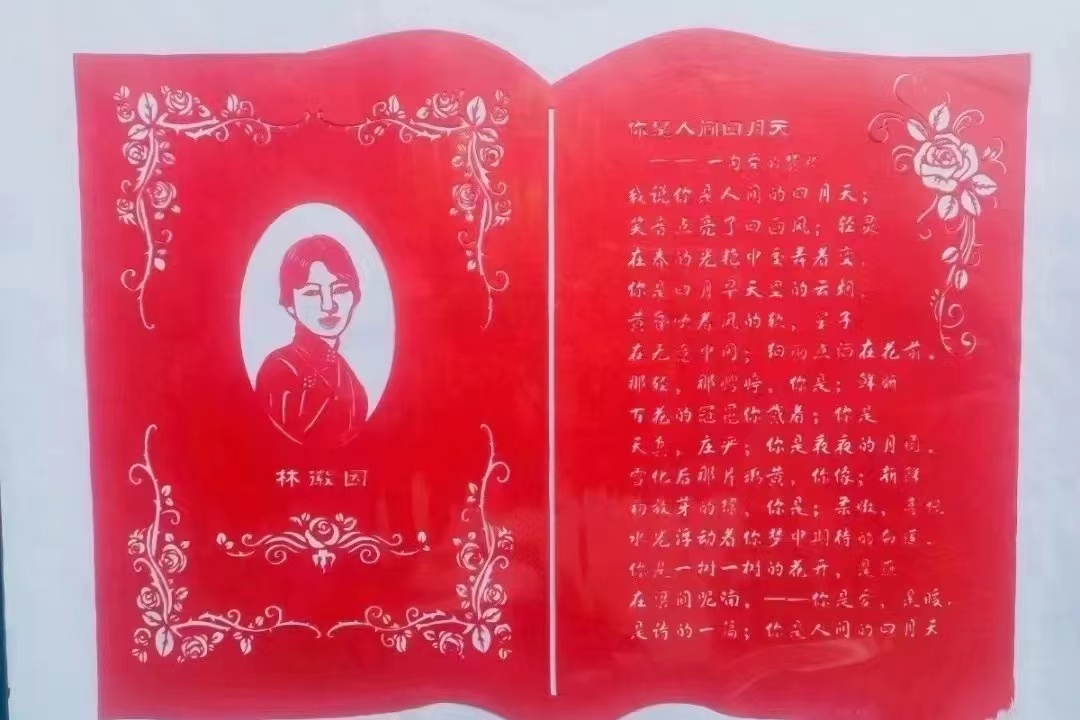 林徽因
你是人间四月天
——一句爱的赞颂
我说你是人间的四月天；
笑音点亮了四面风；轻灵
在春的光艳中交舞着变.
你是四月早天里的云烟，
黄昏吹着风的软，星子
在无意中闪；细雨点洒在花前。
那轻，那娉婷，你是；鲜妍
百花的冠冕你戴着；你是
天真，庄严；你是夜夜的月圆。
雪化后那片鹅黄，你像；新鲜
初放芽的绿，你是；柔嫩，喜悦
水光浮动着你梦中期待的白莲。
你是一树一树的花开，是燕
在梁间呢喃，——你是爱，是暖，
是诗的一篇；你是人间的四月天